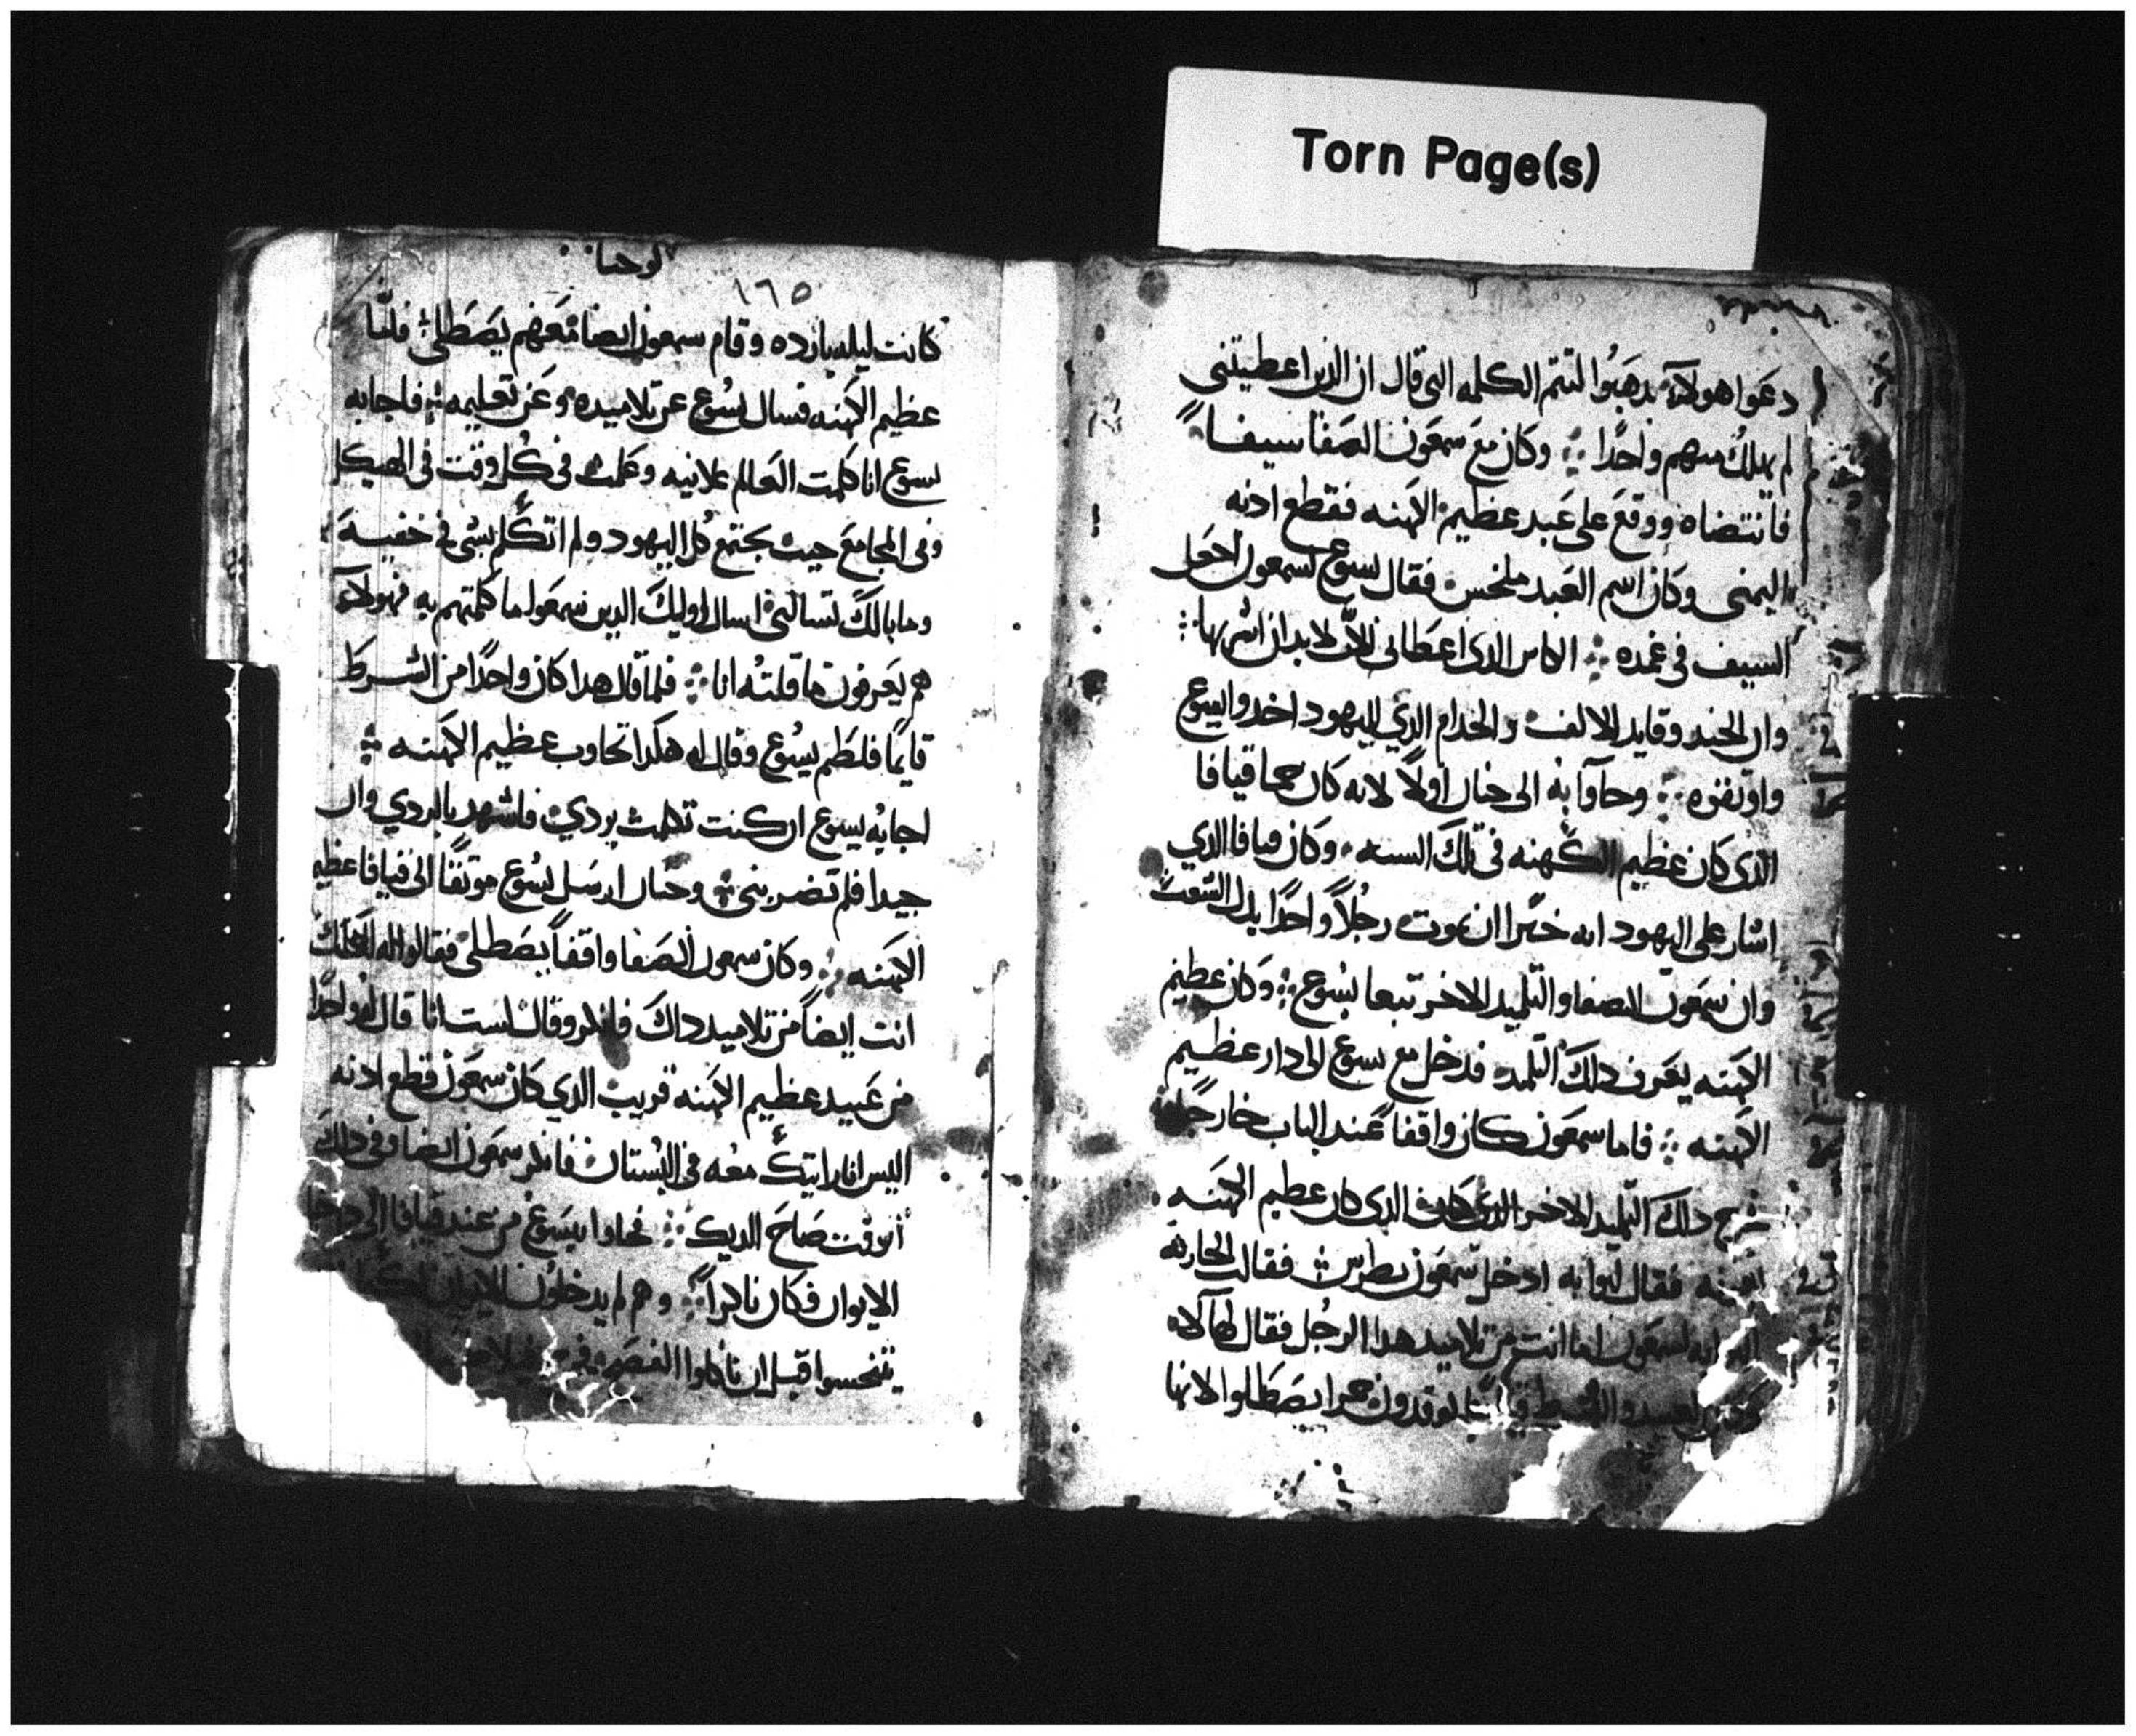 Torn Page(s)
دعوا هولاء يدهبوا لتتم الكلمه التي قال ان الدين اعطيتني
لم يهلك منهم واحدا وكان مع سمعون الصفا سيفا
فانتضاه ووقع على عبد عظيم الكهنه فقطع ادنه
اليمنى وكان اسم العبد ملخس فقال يسوع لسمعون اجعل
السيف في غمده الكاس الدى اعطاني الاب لابد ان اشربها
وان الجند وقايد الالف والخدام الدي لليهود اخدوا يسوع
واوثقوه وجآوا به الى حنان اولاً لانه كان حما قيافا
الدى كان عظيم الكهنه في تلك السنه وكان قيافا الدي
اشار على اليهود انه خيرا ان يموت رجلاً واحدًا بدل الشعب
وان سمعون الصفا والتلميد الاخر تبعا يسوع وكان عظيم
الكهنه يعرف دلك التلميد فدخل مع يسوع الى دار عظيم
الكهنه فاما سمعون كان واقفا عند الباب خارجًا
خرج دلك التلميد الاخر الدى كان عظيم الكهنه
فقال لبوابه ادخل سمعون بطرس فقالت الجاريه
لسمعون اما انت من تلاميد هدا الرجل فقال لها لا
يوقدون جمرا يصطلوا لانها
يوحنا
١٦٥
كانت ليله بارده وقام سمعون ايضا معهم يصطلي فلمّا
عظيم الكهنه فسال يسُوع عن تلاميده وعن تعليمه فاجابه
يسوع انا كلمت العالم علانيه وعلمت في كُل وقت في الهيكل
وفى المجامع حيث يجتمع كل اليهود ولم اتكلم بشى في خفيه
وما بالك تسالني اسال اوليك الدين سمعوا ما كلمتهم به فهولاء
هم يعرفون ما قلتُه انا فلما قال هدا كان واحدًا من الشرط
قايمًا فلطم يسُوع وقال له هكدا تجاوب عظيم الكهنه
اجابه يسوع ان كنت تكلمت بردي فاشهد بالردي وان
جيدا فلم تضربني وحنان ارسل يسُوع موثقًا الى قيافا عظيم
الكهنه وكان سمعون الصفا واقفاً يصطلى فقالوا له لعلك
انت ايضاً من تلاميد داك فانكر وقال لست انا قال له واحدًا
من عبيد عظيم الكهنه قريب الدي كان سمعون قطع ادنه
اليس انا رايتك معه في البُستان فانكر سمعون ايضا وفى دلك
الوقت صاح الديك فجاوا بيسوع من عند قيافا الى
الايوان فكان باكراً وهم لم يدخلون للايوان
يتنجسوا قبل ان ياكلوا الفصح